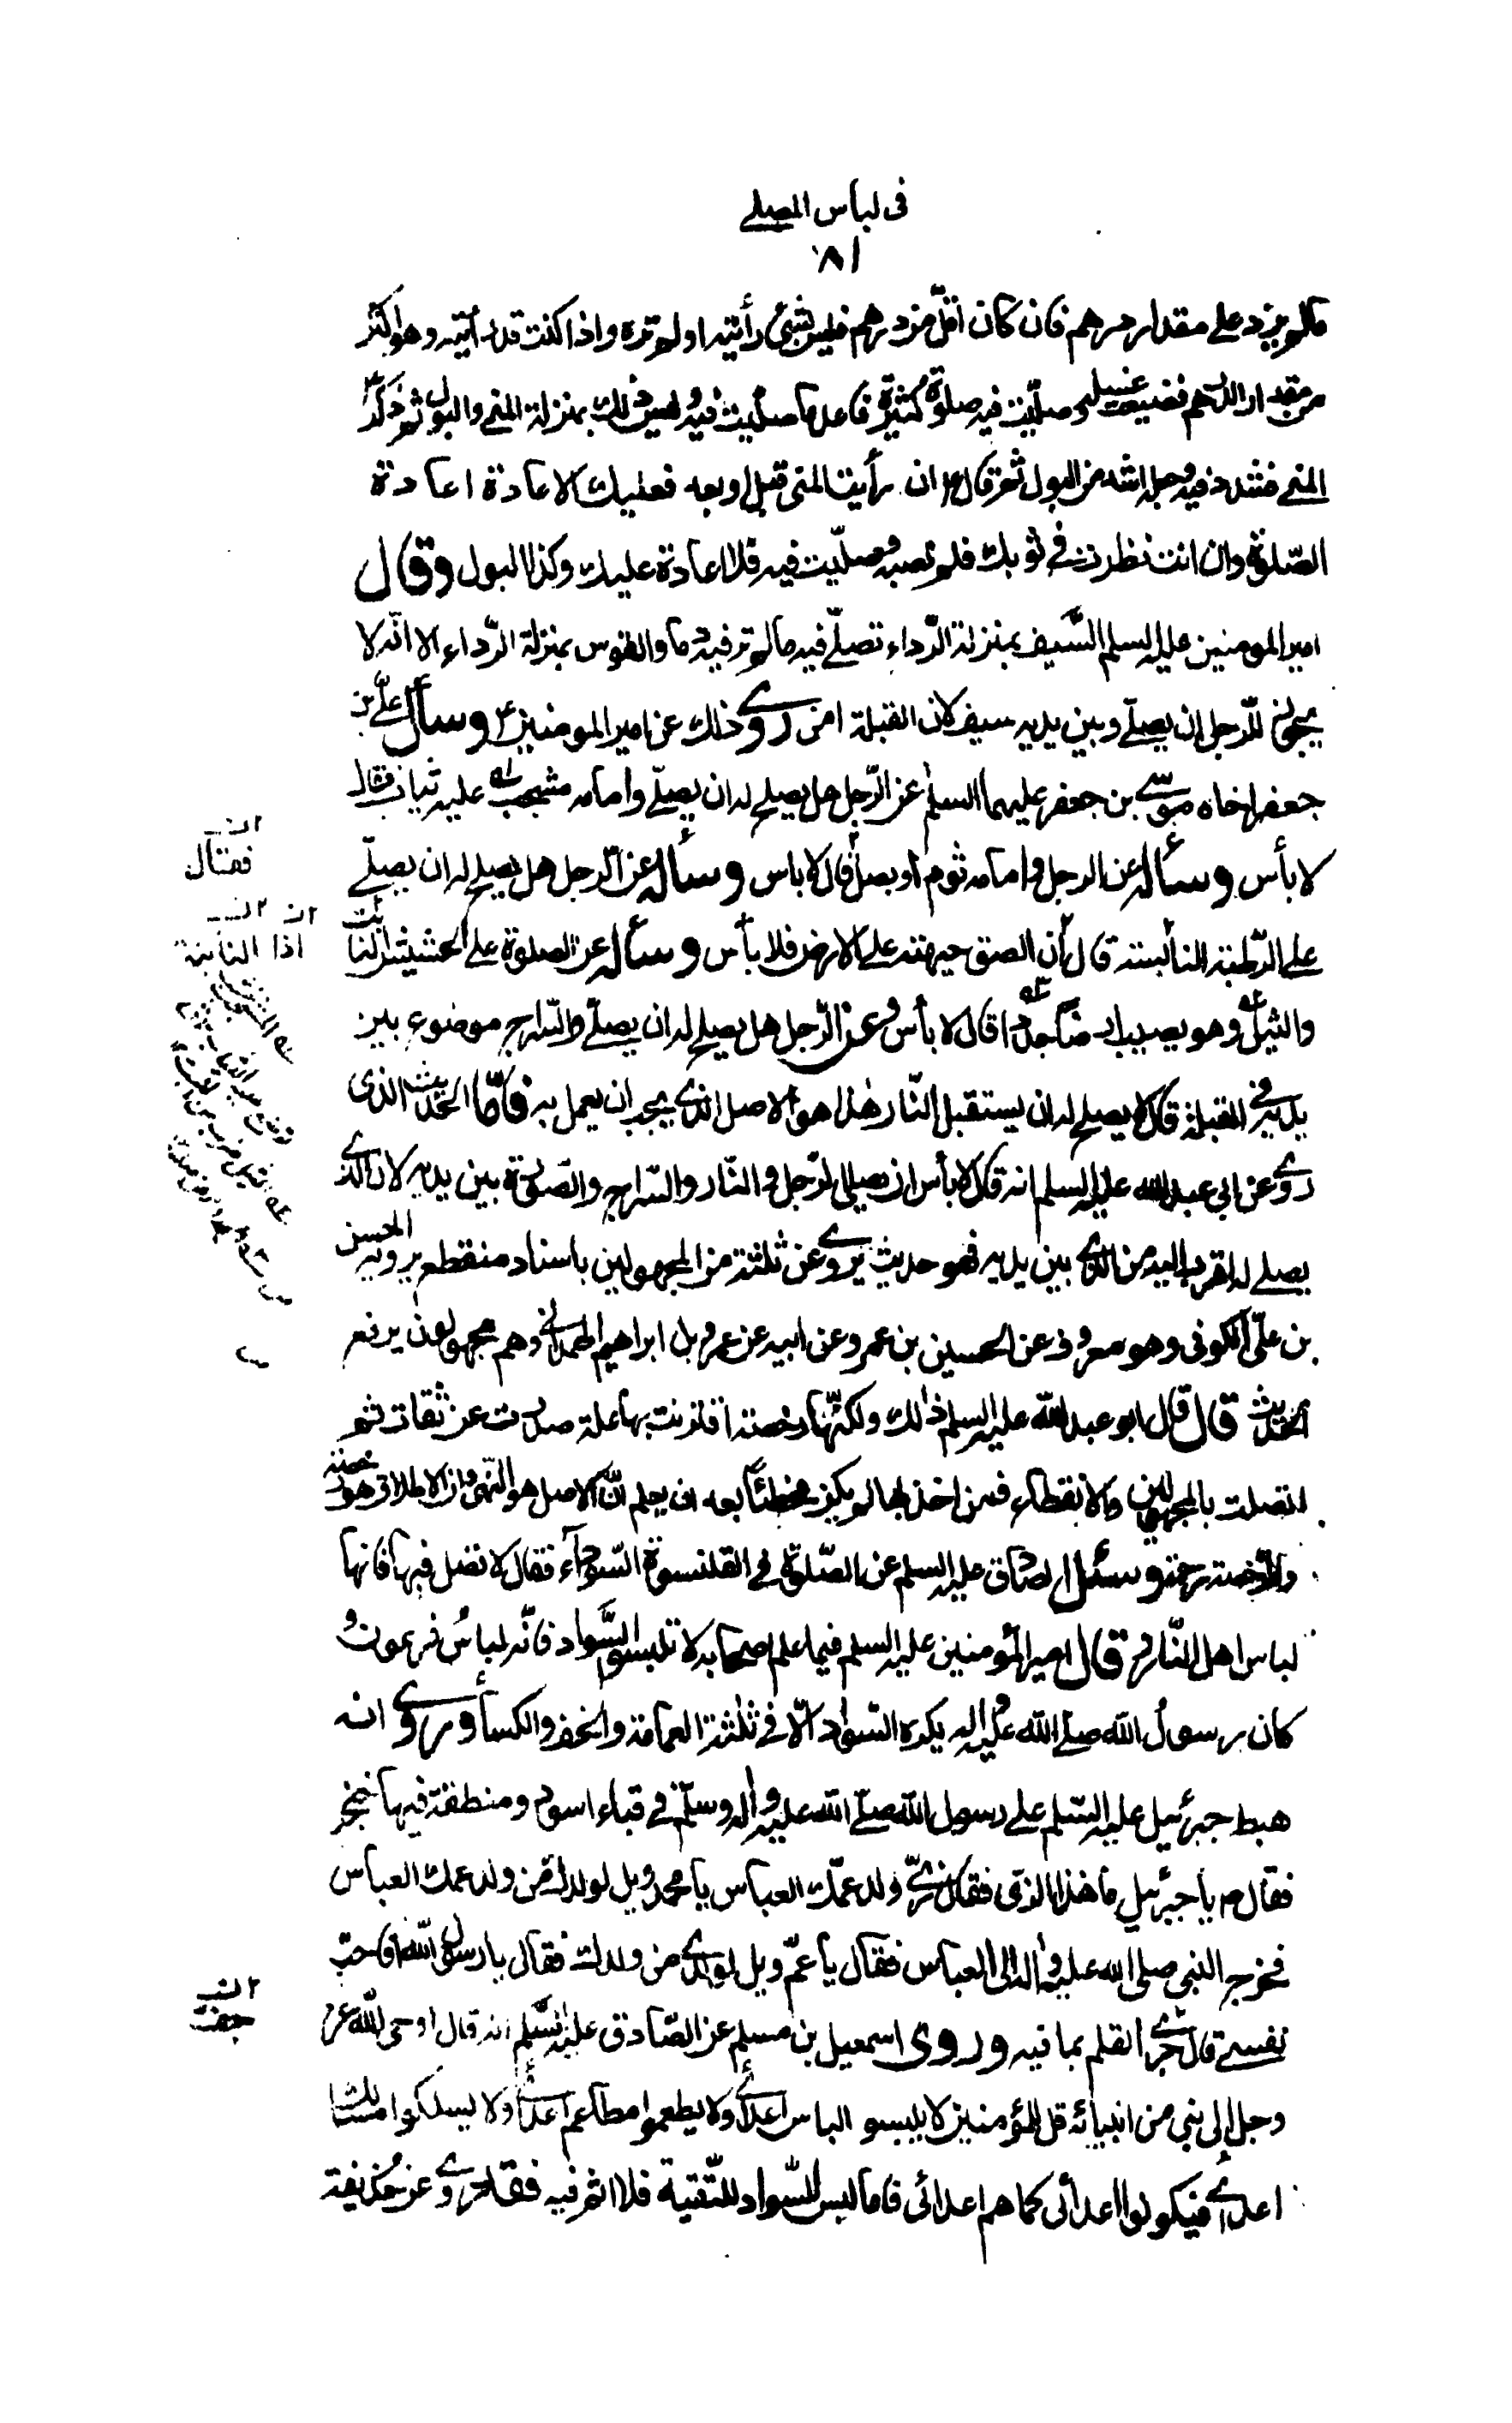 فى لباس المصلے
٨١
مالم يزد على مقدار درهم فان كان اقلّ من درهم فليس بشئ رأيته او لم تره واذا كنت قد رأيته وهو اكثر
من مقدار الدرهم فضيعت غسله وصلّيت فيه صلوة كثيرة فاعد ما صلّيت فيه وليس ذلك بمنزلة المنى والبول ثم ذكر ع
المنى فشدد فيه وجعله اشد من البول ثم قال ع ان رأيت المنى قبل او بعد فعليك الاعادة اعادة
الصّلوة وان انت نظرت فى ثوبك فلم تصبه وصلّيت فيه فلا اعادة عليك وكذا البول وقال
امير المومنين عليه السلم السّيف بمنزلة الرّداء تصلّے فيه مالم تر فيه دما والقوس بمنزلة الرّداء الا انّه لا
يجوز للرّجل ان يصلّے وبين يديه سيف لان القبلة امن روى ذلك عن امير المومنين ع وسأل علّے بن
جعفر اخاه موسے بن جعفر عليهما السلم عن الرّجل هل يصلح له ان يصلّے وامامه مشجب عليه ثياب فقال
لا بأس وسأله عن الرجل وامامه ثوم او بصل قال لا باس وسأله عن الرجل هل يصلح له ان يصلّے
على الرّطبة النابتة قال ان الصق جبهته على الارض فلا بأس وسأله عن الصلوة على الحشيش النابت
والثيل وهو يصيب ارضا جددا قال لا بأس وعن الرّجل هل يصلح له ان يصلّے والسّراج موضوع بين
يديه فى القبلة قال لا يصلح له ان يستقبل النّار هذا هو الاصل الذى يجب ان يعمل به فامّا الحديث الذى
روى عن ابى عبد الله عليه السلم انه قال لا بأس ان يصلى الرّجل والنّار والسّراج والصّورة بين يديه لان الذى
يصلے له اقرب اليه من الذى بين يديه فهو حديث يروى عن ثلثة من المجهولين باسناد منقطع يرويه الحسن
بن علّى الكوفى وهو معروف عن الحسين بن عمرو عن ابيه عن عمرو بن ابراهيم الهمدانى وهم مجهولون يرفع
الحديث قال قال ابو عبد الله عليه السلم ذلك ولكنّها رخصة اقترنت بها علة صدرت عن ثقات ثم
اتصلت بالمجهولين والانقطاع فمن اخذ بها لم يكن مخطئاً بعد ان يعلم انّ الاصل هو النّهى وان الاطلاق هو رخصة
والرّخصة رحمة وسئل الصّادق عليه السلم عن الصّلوة فى القلنسوة السّوداء فقال لا تصل فيها فانها
لباس اهل النّار وقال امير المؤمنين عليه السلم فيما علم اصحابه لا تلبسوا السّواد فانّه لباس فرعون و
كان رسول الله صلے الله عليه واله يكره السّواد الّا فى ثلثة العمامة والخف والكسأ وروى انه
هبط جبرئيل عليه السّلم على رسول الله صلّے الله عليه واله وسلّم فى قباء اسود ومنطقة فيها خنجر
فقال ص يا جبرئيل ما هذا الزى فقال زىّ ولد عمّك العباس يا محمد ويل لولدك من ولد عمك العباس
فخرج النبى صلى الله عليه واله الى العباس فقال يا عمّ ويل لولدى من ولدك فقال يا رسول الله افاجبّ
نفسے قال جرى القلم بما فيه وروى اسمعيل بن مسلم عن الصّادق عليه السّلم انه قال اوحى الله عز
وجل الى نبى من انبيائه قل للمؤمنين لا يلبسو الباس اعدائى ولا يطعموا مطاعم اعدائى ولا يسلكوا مسالك
اعدائى فيكونوا اعدائى كما هم اعدائى فاما لبس السّواد للتّقية فلا اثم فيه فقد روى عن حذيفة
فقال
اذا النابتة
جفت